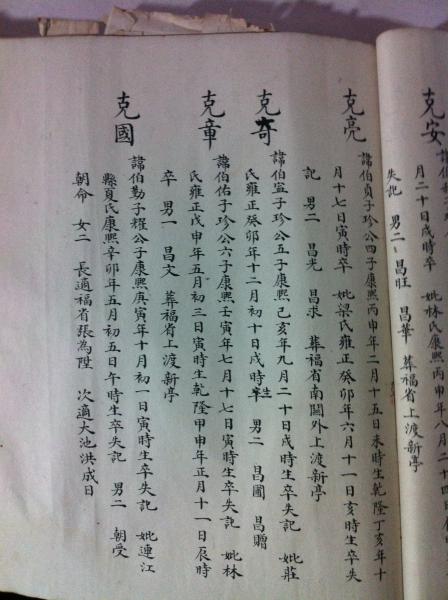 克安
月二十日戌時卒 妣林氏康熙丙申年八月二十
失記 男二 昌旺 昌華 葬福省上渡新亭
克亮
諱伯貞子珍公四子康熙丙申年二月十五日未時生乾隆丁亥年十
月十七日寅時卒 妣梁氏雍正癸卯年六月十一日亥時生卒失
記 男二 昌光 昌求 葬福省南關外上渡新亭
克奇
諱伯宜子珍公五子康熙己亥年九月二十日戌時生卒失記 妣莊
氏雍正癸卯年十二月初十日戌時生卒 男二 昌圃 昌贈
克章
諱伯佑子珍公六子康熙壬寅年七月十七日寅時生卒失記 妣林
氏雍正戊申年五月初三日寅時生乾隆甲申年正月十一日辰時
卒 男一 昌文 葬福省上渡新亭
克國
諱伯勤子耀公子康熙庚寅年十月初一日寅時生卒失記 妣連江
縣夏氏康熙辛卯年五月初五日午時生卒失記 男二 朝受
朝命 女二 長適福省張為陞 次適大池洪成日